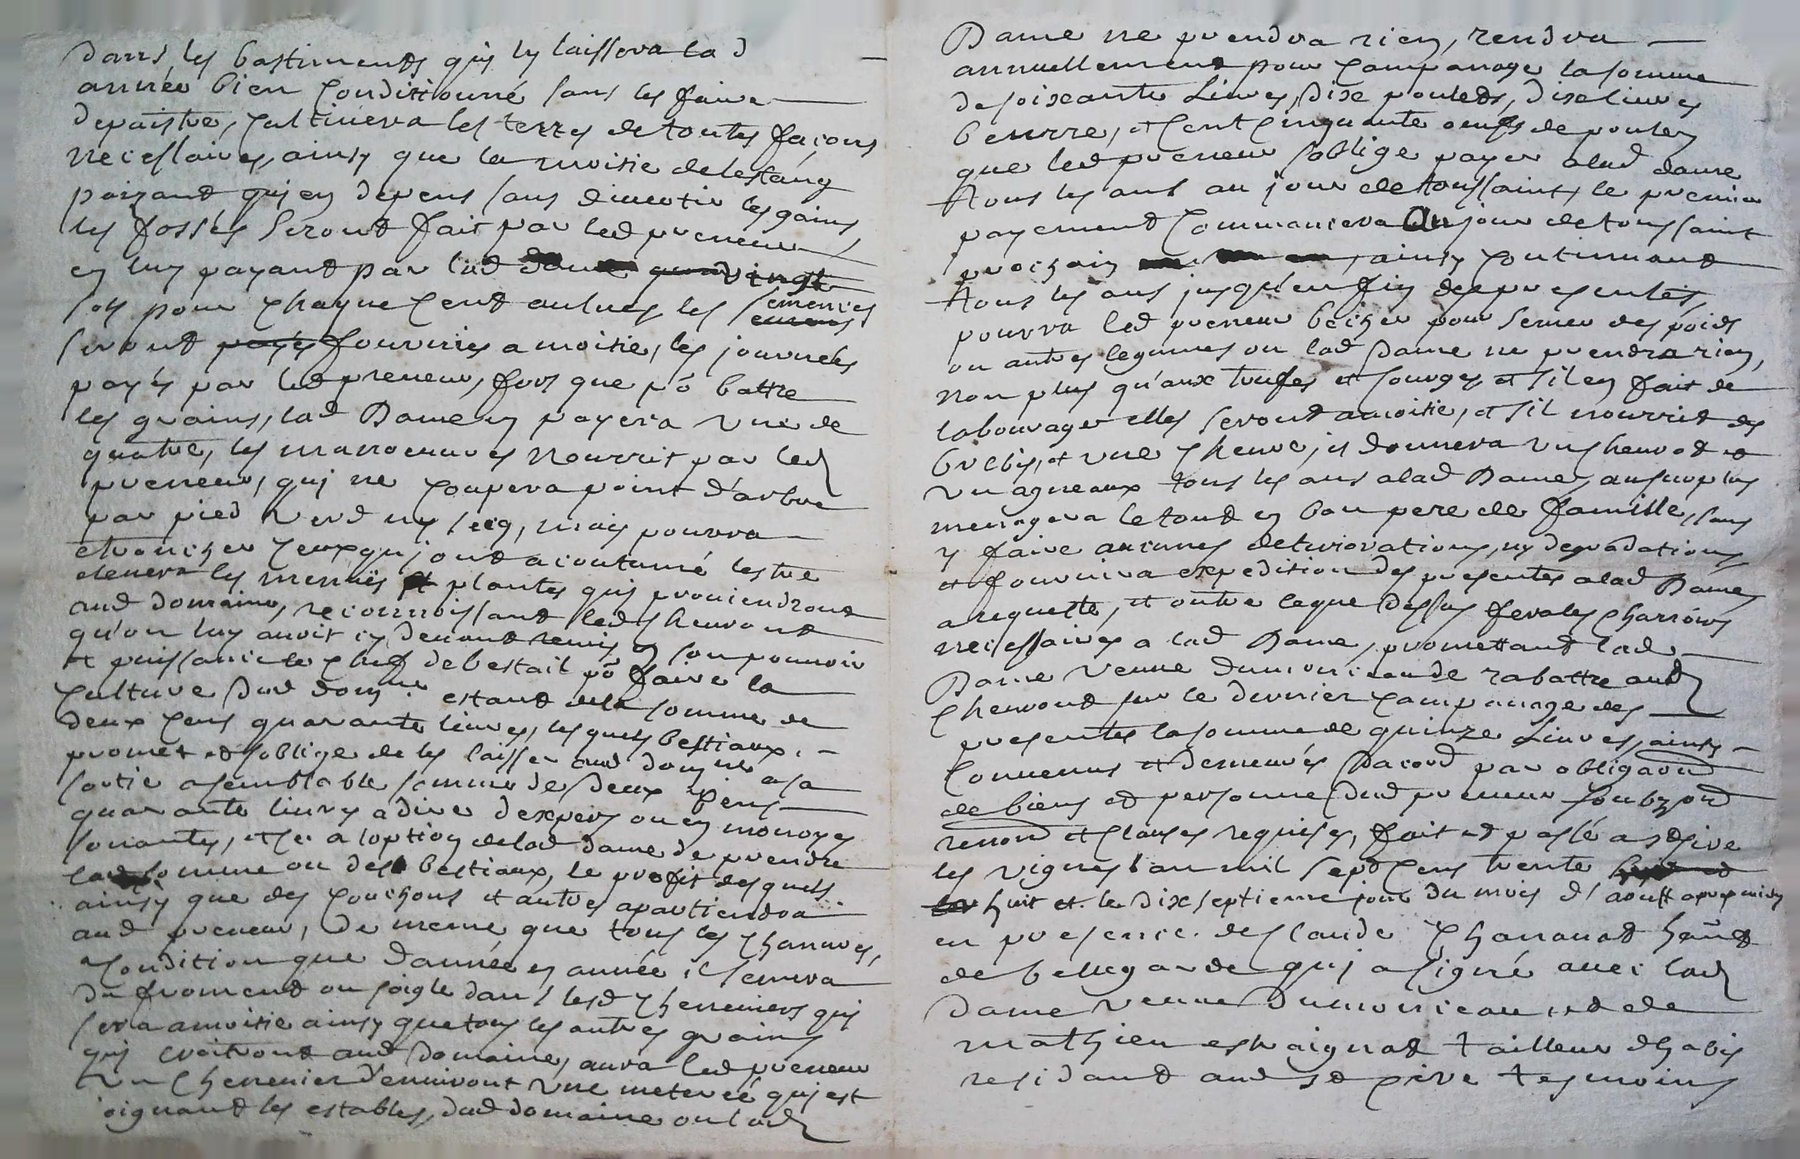 dans les bastiments quj ly laissera lad
année bien conditionné sans les faire
depaistre, cultivera les terres de toutes façons
necessaires, ainsy que la moitie delestang
paizant quj en depens sans divertir les gains,
les fossés seront fait par led preneur
en luy payant par lad dame quatrevingt
sols pour chaque cent aulnes, les semences
seront payés fournies a moitie, les journeles
payés par led preneur, fors que pô battre
les grains, lad Dame en payera une de
quatre, les manoeuvres nourrit par led
preneur, quj ne coupera point d'arbre
par pied verd ny secq, mais pourra
etroncher ceux quj ont acoutumé lestre
elevera les menües et plantes quj proviendront
aud domaine, reconnoissant led chervont
qu'on luy avoit cy devant remis en son pouvoir
et puissance le chef de bestail pô faire la
culture dud domne estant dela somme de
deux cens quarante livres, les quels bestiaux
promet et soblige de les laisser aud domne a sa
sortie a semblable somme de deux cens
quarante livres a dire d'expers ou en monoyes
sonantes, et ce a loption delad dame de prendre
lad somme ou des bestiaux, le profit desquels
ainsy que des couchons et autres apartiendra
aud preneur, De meme que tous les chanvres,
Condition que d'année en année il semera
du froment ou soigle dans lesd chereniers quj
sera a moitie ainsy que tous les autres grains
quj croitront aud domaine, aura led preneur
un cherenier d'environt une meterée quj est
joignant les estables, dud domaine ou lad
Dame ne prendra rien, rendra
annuellement pour campanage la somme
de soixante Livres, dix poulets, dix livres
beurre, et cent cinquante oeufs de poules
que led preneur soblige payer a lad dame
tous les ans au jour de toussaints, le premier
payement commancera Au jour de toussaint
prochain ainsy continuant
tous les ans jusqu'en fin des presentes,
pourra led preneur becher pour semer des pois
ou autres legumes ou lad Dame ne prendra rien,
non plus qu'aux trufes et courges, et sil en fait de
labourages elles seront a moitie, et sil nourrit des
brebis, et une chevre, il donnera un chevrot et
un agneaux tous les ans a lad Dame, au surplus
menagera le tout en bon pere de famille, sans
y faire aucunes deteriorations, ny degradations
et fournira expedition des presentes a lad Dame
a requette, et outre ce que dessus fera les charrois
necessaires a lad Dame, promettant lad
Dame veuve Dumonceau de rabattre aud
chervont sur le dernier campanage des
presentes la somme de quinze Livres, ainsy
convenus et demeurés d'acord par obligaond
de biens et personne dud preneur soubz ond
renond et clauses requises, fait et passé a st sire
les vignes l'an mil sept cens trente
huit et le dix septieme jour du mois d'aoust apres midy
en presence de sr claude chanauat hant
de bellegarde quj a signé avec lad
Dame veuve Dumonceau et de
mathieu estraignat tailleur dhabis
residant aud st sire tesmoins